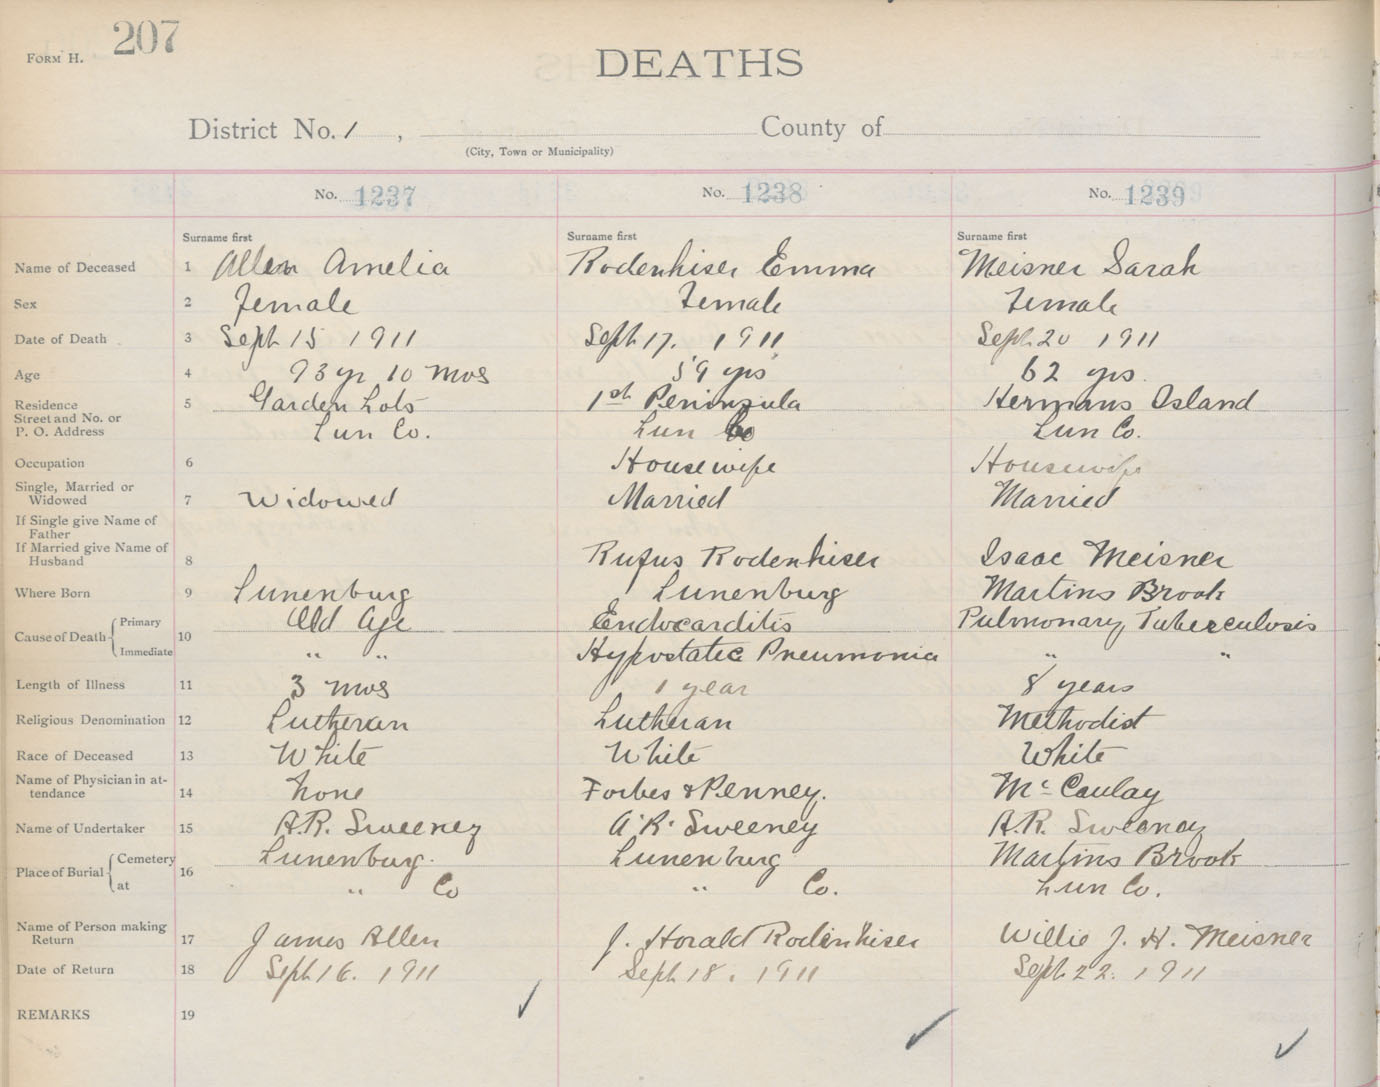 FORM H. 207
DEATHS
District No. 1 , County of
(City, Town or Municipality)
No. 1237 No. 1238 No. 1239
Surname first Surname first Surname first
Name of Deceased 1 Allen Amelia Rodenhiser Emma Meisner Sarah
Sex 2 Female Female Female
Date of Death 3 Sept 15 1911 Sept 17. 1911 Sept 20 1911
Age 4 93 yr 10 mos 59 yrs 62 yrs.
Residence 5 Garden Lots 1st Peninzula Hermans Island
Street and No. or
P. O. Address Lun Co. Lun Co Lun Co.
Occupation 6 Housewife Housewife
Single, Married or
Widowed 7 Widowed Married Married
If Single give Name of
Father
If Married give Name of
Husband 8 Rufus Rodenhiser Isaac Meisner
Where Born 9 Lunenburg Lunenburg Martins Brook
Cause of Death 10 Primary Old Age Endocarditis Pulmonary Tuberculosis
Immediate " " Hypostatic Pneumonia " "
Length of Illness 11 3 mos 1 year 8 years
Religious Denomination 12 Lutheran Lutheran Methodist
Race of Deceased 13 White White White
Name of Physician in at-
tendance 14 None Forbes & Penney. McCaulay
Name of Undertaker 15 A.R. Sweeney A.R. Sweeney A.R. Sweeney
Place of Burial 16 Cemetery Lunenburg. Lunenburg Martins Brook
at " Co " Co. Lun Co.
Name of Person making
Return 17 James Allen J. Horald Rodenhiser Willie J. H. Meisner
Date of Return 18 Sept 16. 1911 Sept 18. 1911 Sept 22. 1911
REMARKS 19